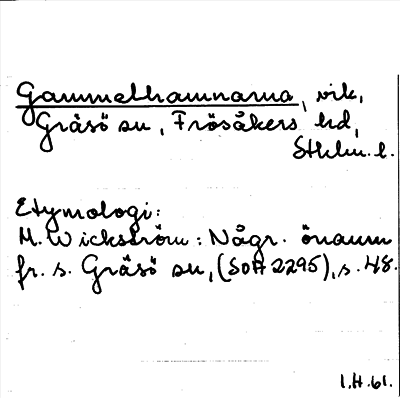 Gammelhamnarna, vik,
Gräsö sn, Frösåkers hd,
Sthlm. l.
Etymologi:
M. Wickström: Någr. önamn
fr. s. Gräsö sn, (SOA 2295), s. 48.
1.H.61.